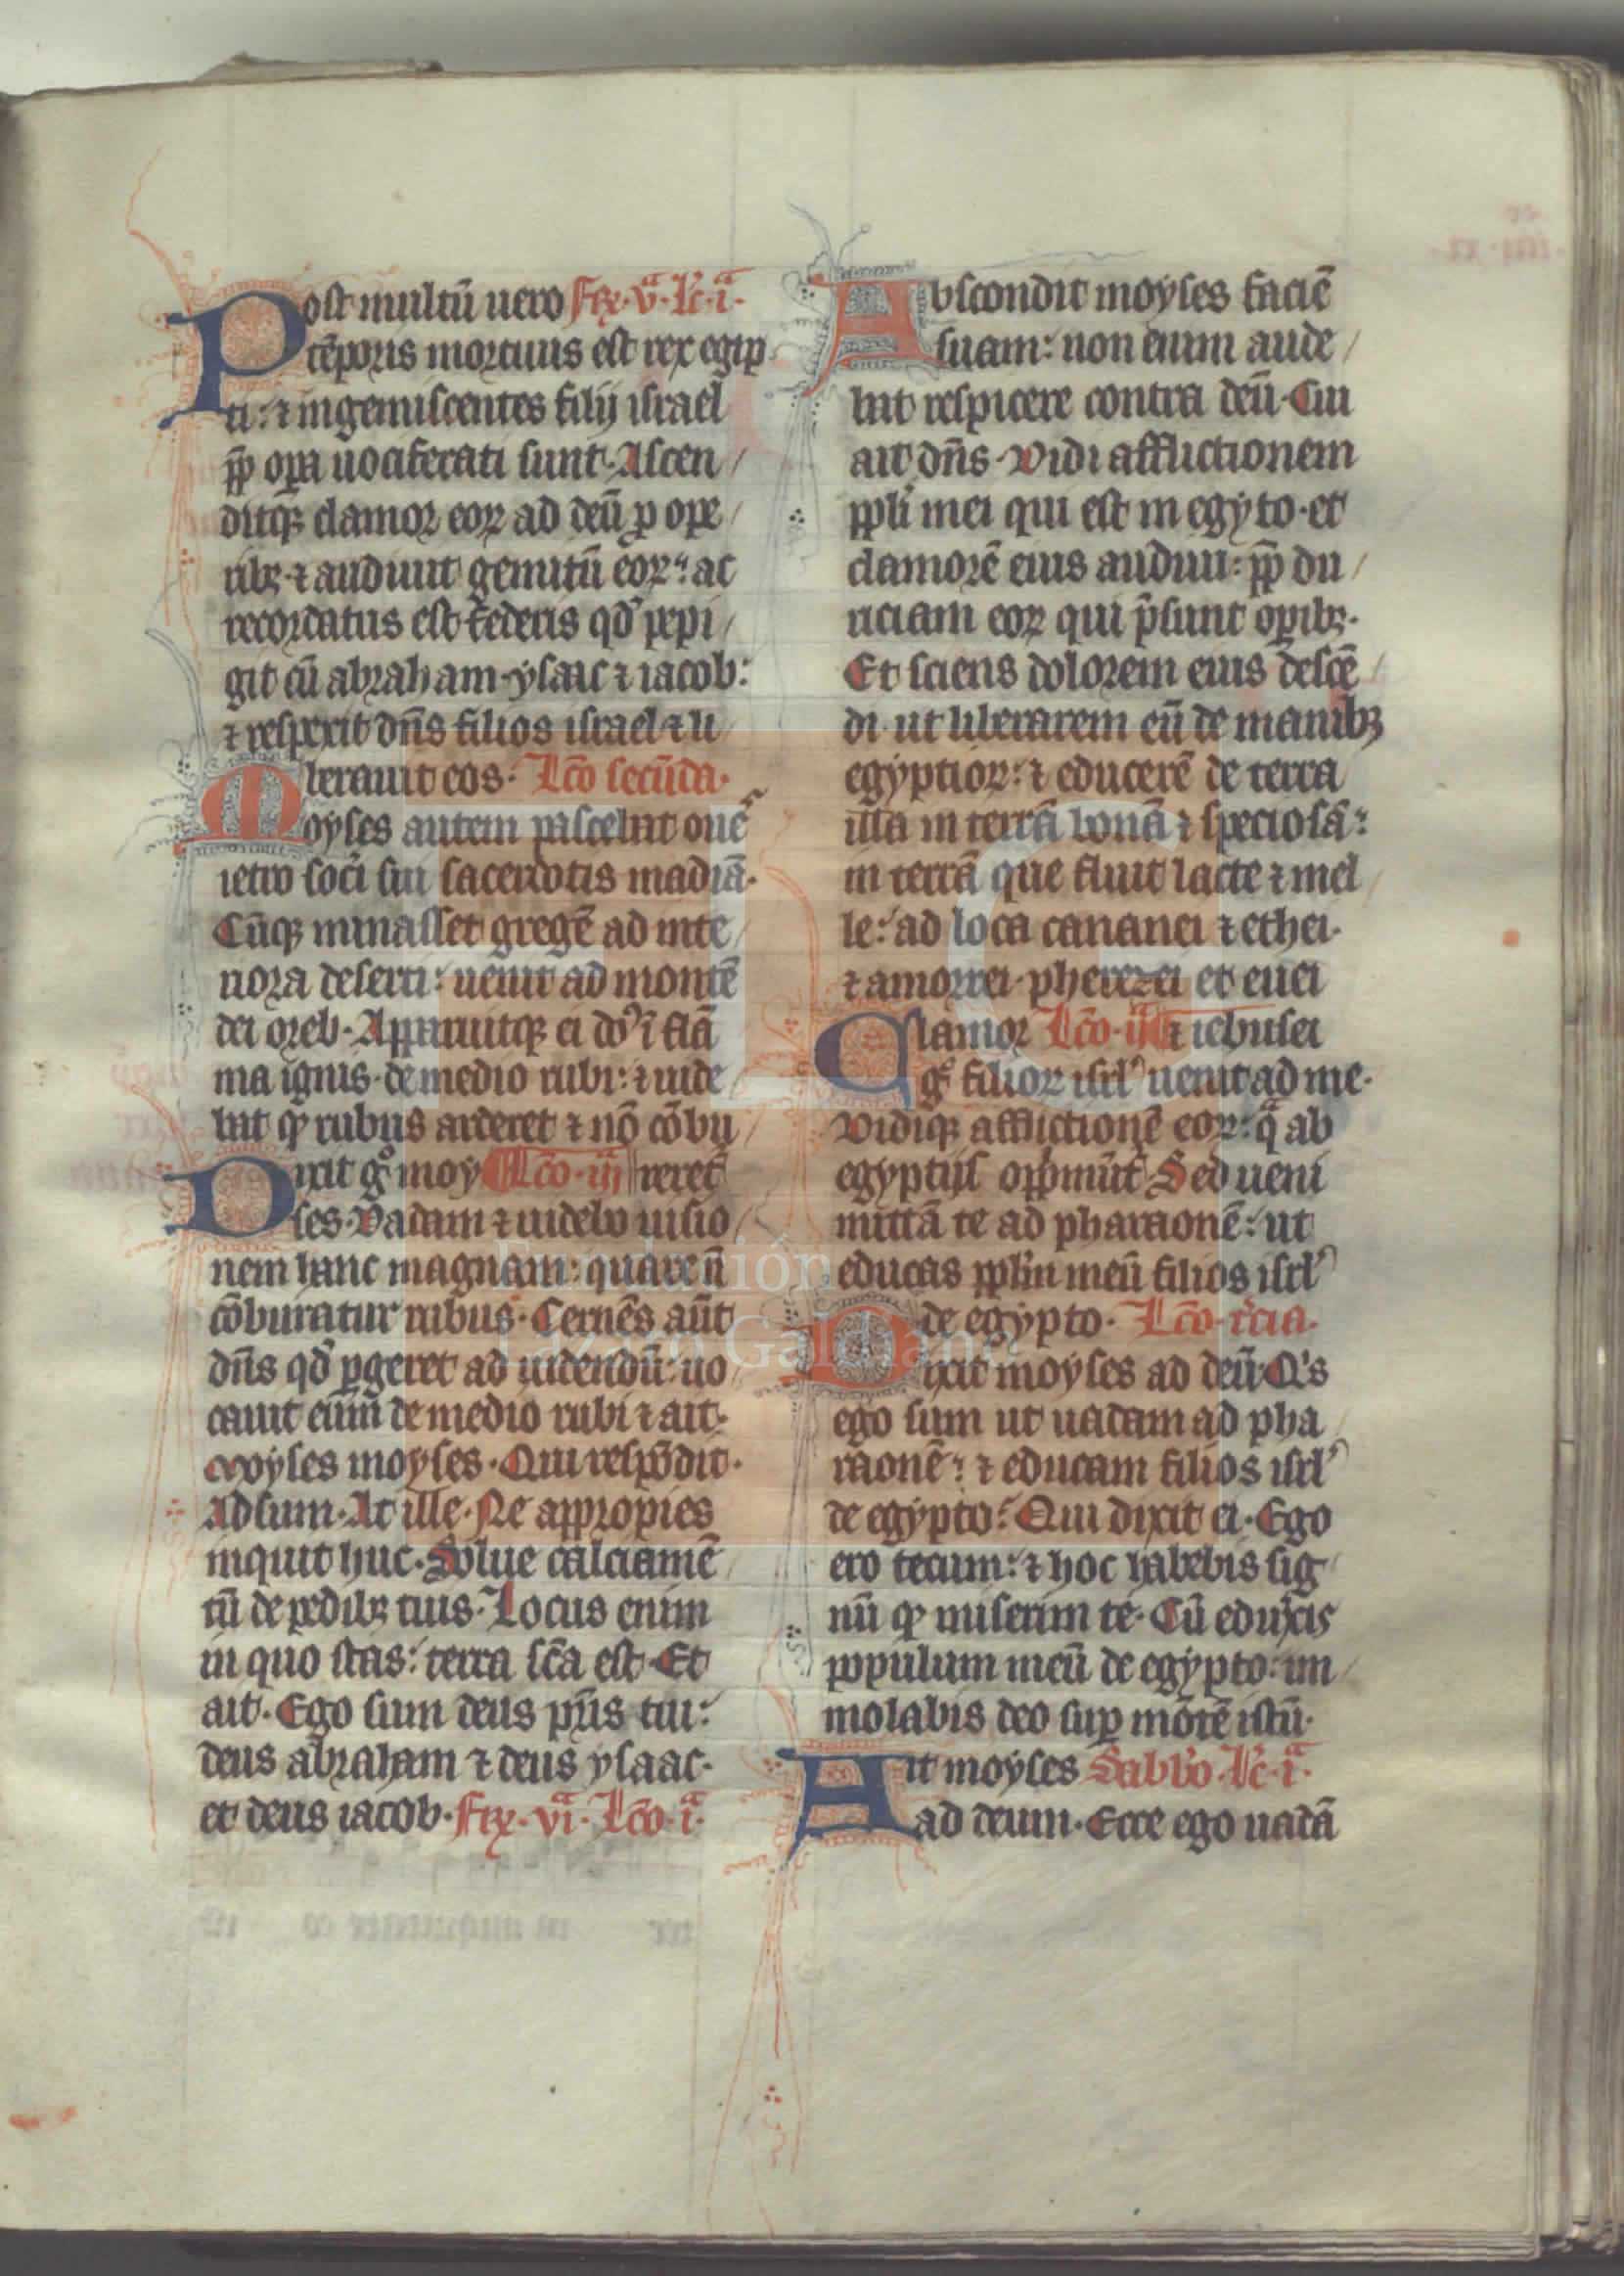 Post multū uero Fr̄. vª. lc̄. iª.
tēporis mortuus est rex egip
ti: ⁊ ingemiscentes filij israel
ꝓp oꝑa uociferati sunt. Ascen
ditqꝫ clamor eoꝝ ad deū ꝓ ope
ribꝫ. ⁊ audiuit gemitū eoꝝ: ac
recordatus est federis qd̓ pepi
git cū abraham. ysaac ⁊ iacob:
⁊ respexit dn̄s filios israel ⁊ li
berauit eos. Lc̄o secūda.
Moyses autem pascebat oues
ietro soc̓i sui sacerdotis madiā.
Cūqꝫ minasset gregē ad inte
riora deserti: uenit ad montē
dei oreb. Apparuitqꝫ ei dn̄s ī flā
ma ignis. de medio rubi: ⁊ uide
bat ꝙ rubus arderet ⁊ nō cōbu
Dixit g̊ moy Lc̄o. iijª reret̄
ses. Vadam ⁊ uidebo uisio
nem hanc magnam: quare n̄
cōburatur rubus. Cernēs aūt
dn̄s qd̓ ꝑgeret ad uidendū: uo
cauit eūm de medio rubi ⁊ ait.
Moyses moyses. Qui respōdit.
Adsum. At ille. Ne appropies
inquit huc. Solue calciamē
tū de pedibꝫ tuis. Locus enim
in quo stas: terra sc̄a est. Et
ait. Ego sum deus pr̄is tui:
deus abraham ⁊ deus ysaac.
et deus iacob. Fr̄. viª. Lc̄o. iª.
Abscondit moyses faciē
suam: non enim aude
bat respicere contra deū. Cui
ait dn̄s. Vidi afflictionem
ppl̓i mei qui est in egypto. et
clamorē eius audiui: ꝓp du
riciam eoꝝ qui p̄sunt oꝑibꝫ.
Et sciens dolorem eius descē
di. ut liberarem eū de manibꝫ
egyptioꝝ: ⁊ educerē de terra
illa in terrā bonā ⁊ speciosā:
in terrā que fluit lacte ⁊ mel
le: ad loca cananei ⁊ ethei.
⁊ amorrei. pherezei et euei
Clamor Lc̄o. ijª ⁊ iebusei
g̊ filioꝝ isrl̓ uenit ad me.
Vidiqꝫ afflictionē eoꝝ: qª ab
egyptijs opp̄mūt̄. Sed ueni
mittā te ad pharaonē: ut
educas ppl̓m meū filios isrl̓
de egypto. Lc̄o. t̄cia.
Dixit moyses ad deū. Q̓s
ego sum ut uadam ad pha
raonē: ⁊ educam filios isrl̓
de egypto? Qui dixit ei. Ego
ero tecum: ⁊ hoc habebis sig
nū ꝙ miserim te. Cū eduxeris
populum meū de egypto: im
molabis deo suꝑ mōtē istū.
Ait moyses Sabbō. lc̄. iª.
ad deum. Ecce ego uadā
Fundación
Lázaro Galdiano